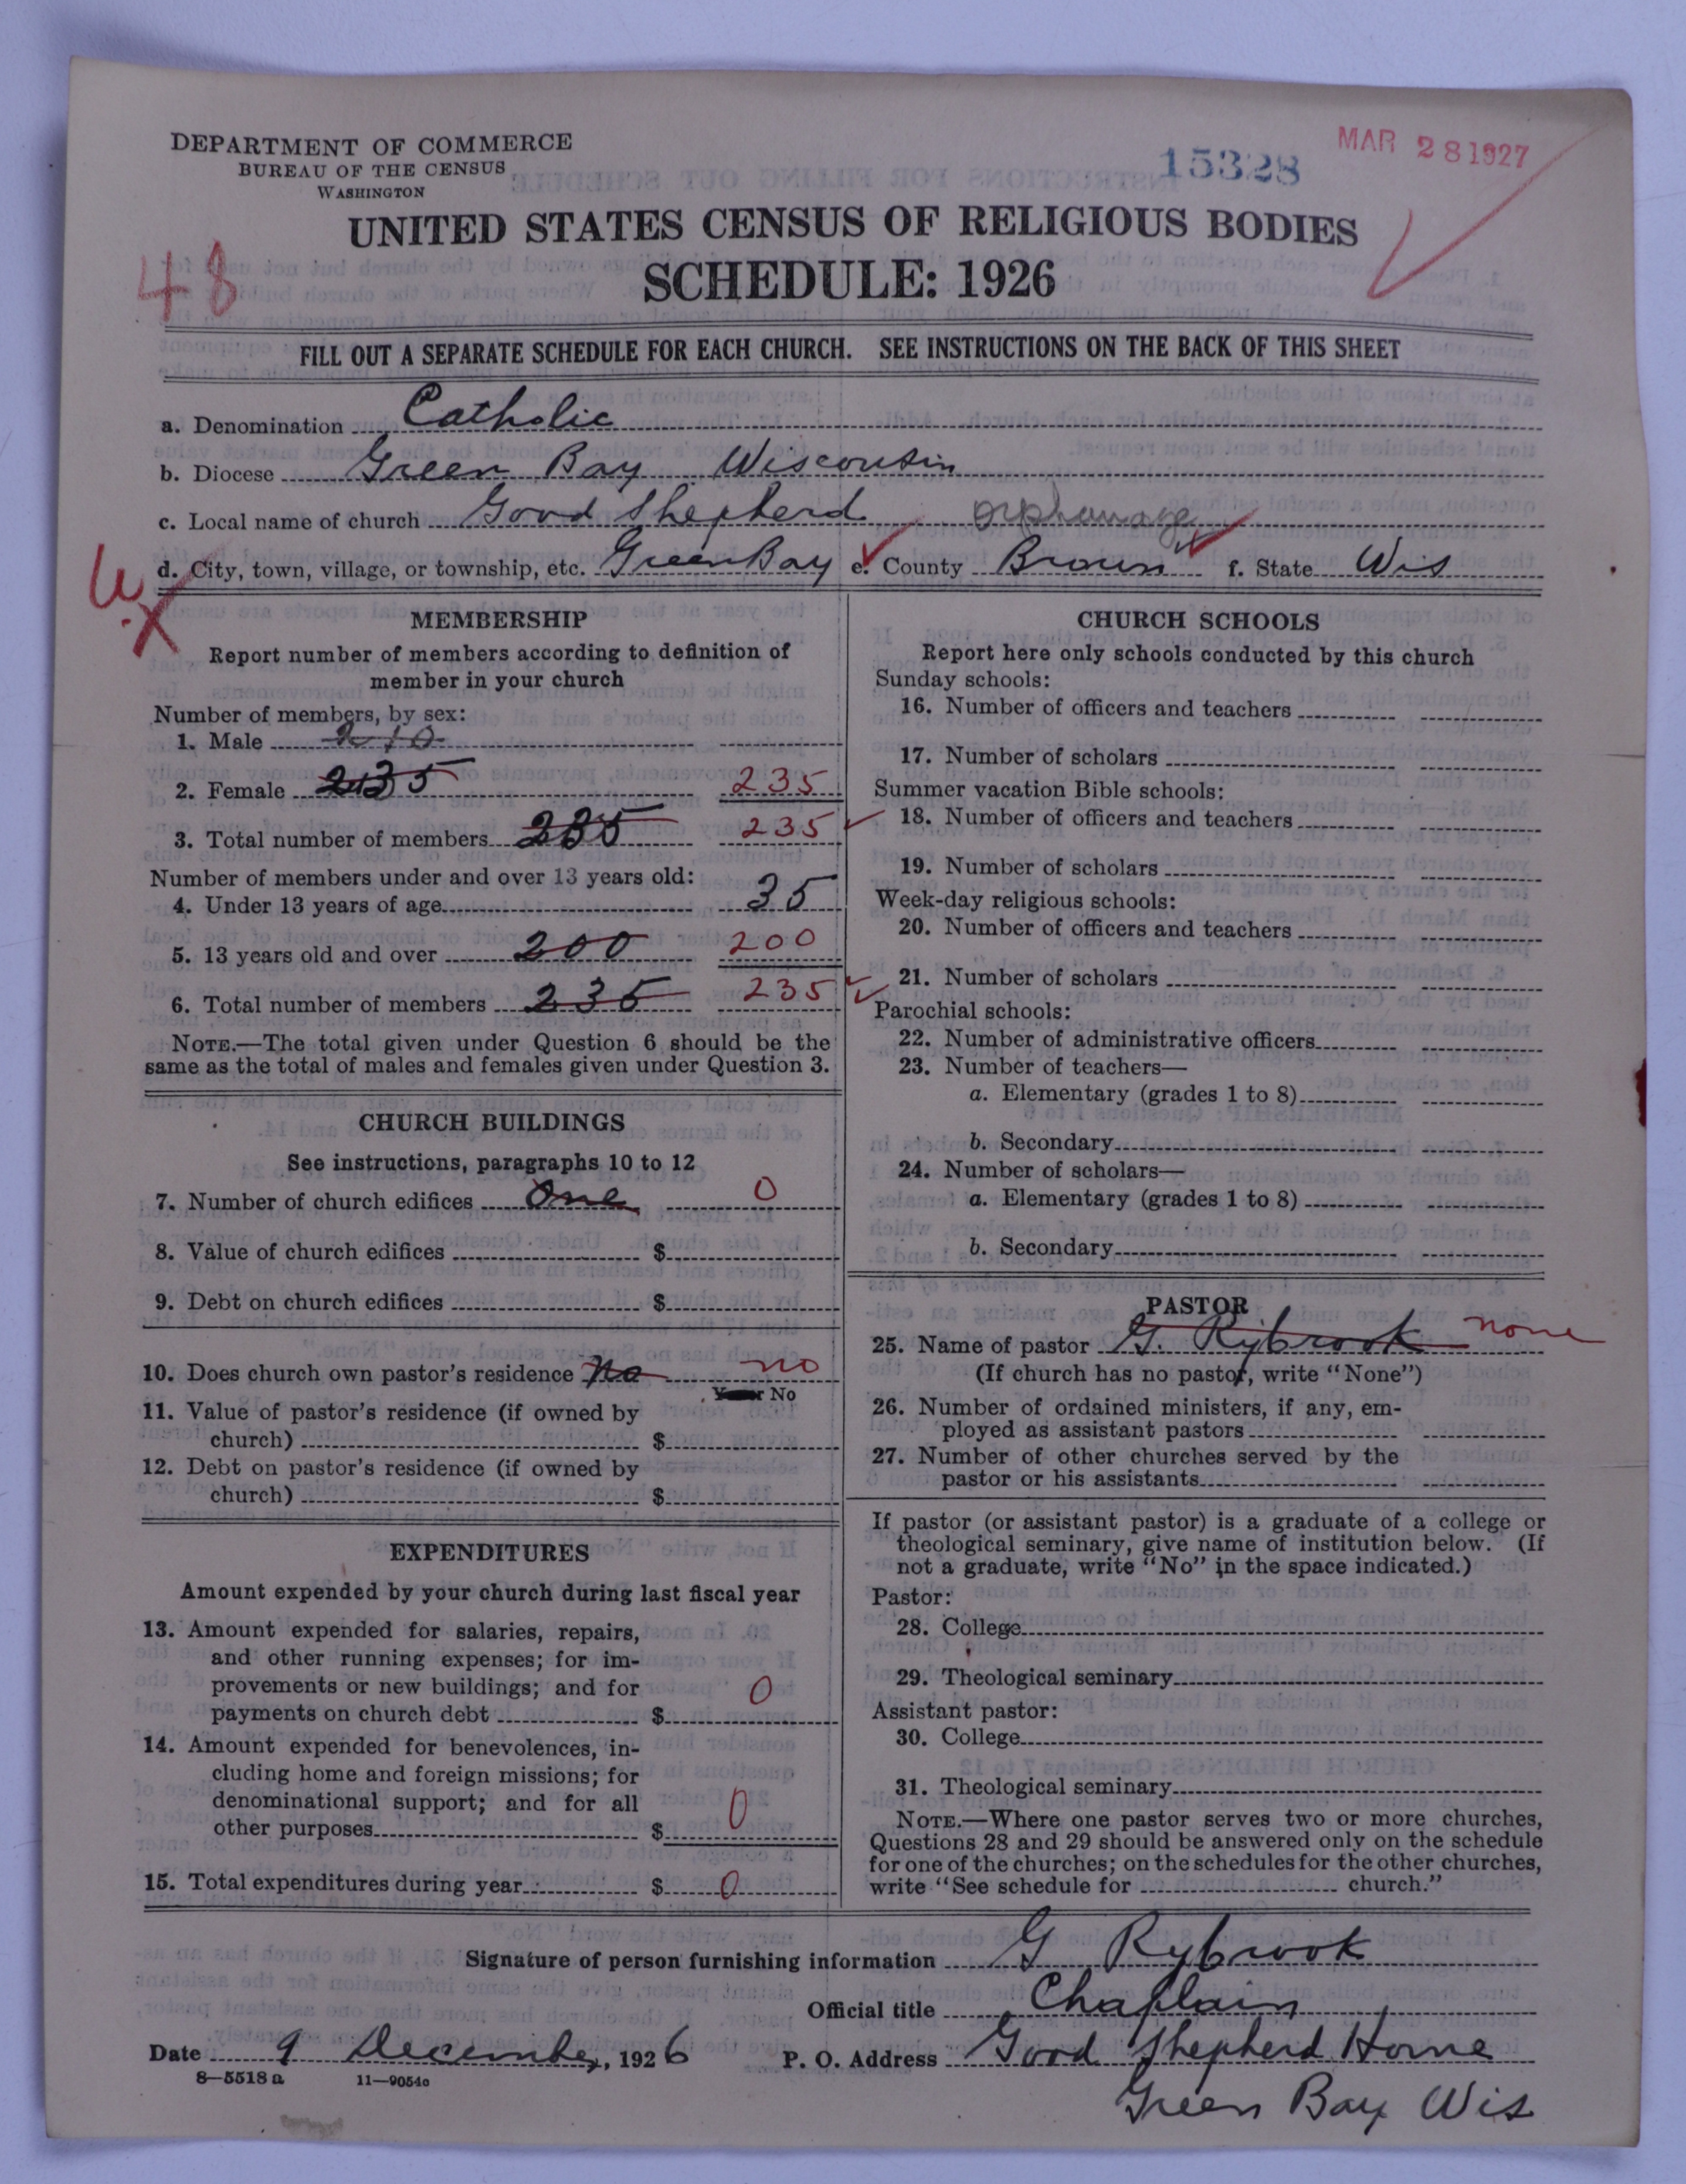 DEPARTMENT OF COMMERCE
BUREAU OF THE CENSUS
WASHINGTON
15328
MAR 28 1927
UNITED STATES CENSUS OF RELIGIOUS BODIES
SCHEDULE: 1926
48
FILL OUT A SEPARATE SCHEDULE FOR EACH CHURCH. SEE INSTRUCTIONS ON THE BACK OF THIS SHEET
a. Denomination Catholic
b. Diocese Green Bay Wisconsin
c. Local name of church Good Shepherd orphanage
d. City, town, village, or township, etc. Green Bay e. County Brown f. State Wis
MEMBERSHIP
Report number of members according to definition of
member in your church
Number of members, by sex:
1. Male
2. Female 235 235
3. Total number of members 235 235
Number of members under and over 13 years old:
4. Under 13 years of age 35
5. 13 years old and over 200 200
6. Total number of members 235 235
NOTE.—The total given under Question 6 should be the
same as the total of males and females given under Question 3.
CHURCH BUILDINGS
See instructions, paragraphs 10 to 12
7. Number of church edifices One 0
8. Value of church edifices $
9. Debt on church edifices $
10. Does church own pastor's residence No no
No
11. Value of pastor's residence (if owned by
church) $
12. Debt on pastor's residence (if owned by
church) $
EXPENDITURES
Amount expended by your church during last fiscal year
13. Amount expended for salaries, repairs,
and other running expenses; for im-
provements or new buildings; and for
payments on church debt $ 0
14. Amount expended for benevolences, in-
cluding home and foreign missions; for
denominational support; and for all
other purposes $ 0
15. Total expenditures during year $ 0
CHURCH SCHOOLS
Report here only schools conducted by this church
Sunday schools:
16. Number of officers and teachers
17. Number of scholars
Summer vacation Bible schools:
18. Number of officers and teachers
19. Number of scholars
Week-day religious schools:
20. Number of officers and teachers
21. Number of scholars
Parochial schools:
22. Number of administrative officers
23. Number of teachers—
a. Elementary (grades 1 to 8)
b. Secondary
24. Number of scholars—
a. Elementary (grades 1 to 8)
b. Secondary
PASTOR
25. Name of pastor G. Rybrook none
(If church has no pastor, write "None")
26. Number of ordained ministers, if any, em-
ployed as assistant pastors
27. Number of other churches served by the
pastor or his assistants
If pastor (or assistant pastor) is a graduate of a college or
theological seminary, give name of institution below. (If
not a graduate, write "No" in the space indicated.)
Pastor:
28. College
29. Theological seminary
Assistant pastor:
30. College
31. Theological seminary
NOTE.—Where one pastor serves two or more churches,
Questions 28 and 29 should be answered only on the schedule
for one of the churches; on the schedules for the other churches,
write "See schedule for church."
Signature of person furnishing information G Rybrook
Official title Chaplain
Date 9 December, 1926 P. O. Address Good Shepherd Home
8—5518a 11—9054c
Green Bay Wis